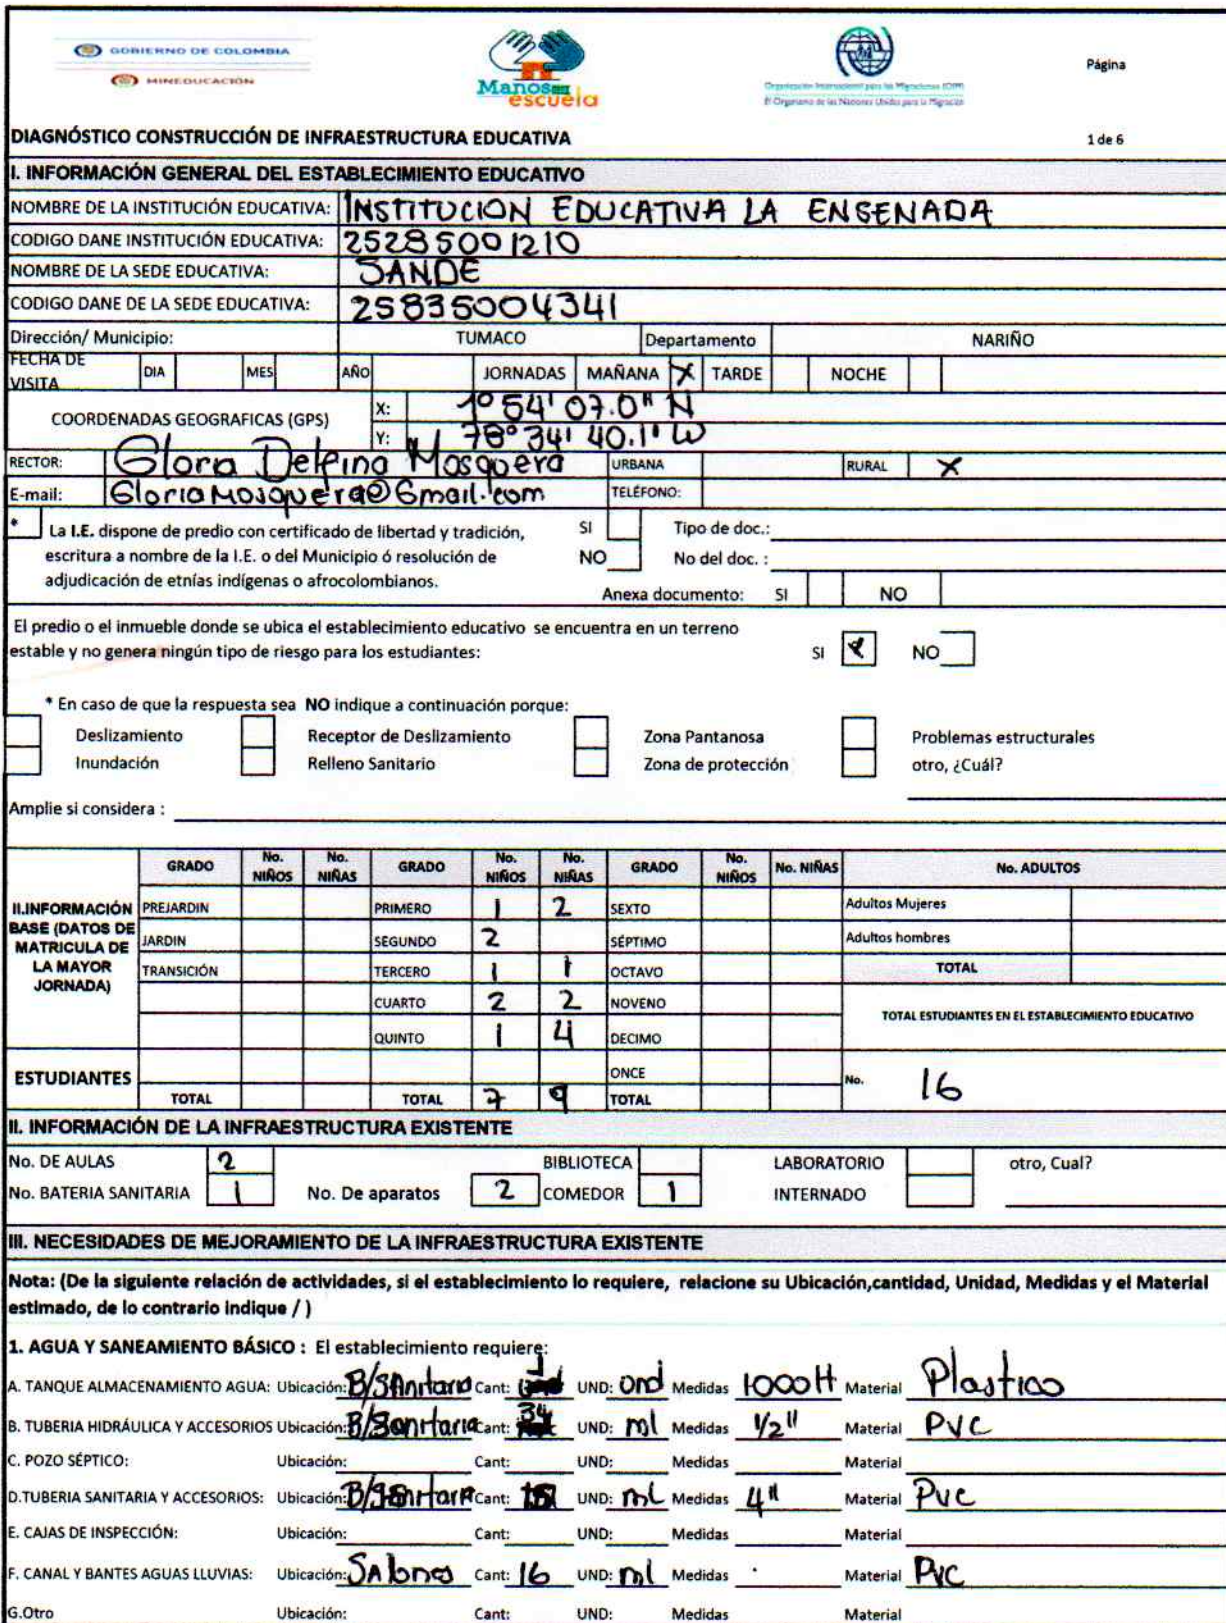 GOBIERNO DE COLOMBIA
MINEDUCACIÓN
Manos
escuela
Organización Internacional para las Migraciones (OIM)
El Organismo de las Naciones Unidas para la Migración
Página
DIAGNÓSTICO CONSTRUCCIÓN DE INFRAESTRUCTURA EDUCATIVA 1 de 6
I. INFORMACIÓN GENERAL DEL ESTABLECIMIENTO EDUCATIVO
NOMBRE DE LA INSTITUCIÓN EDUCATIVA: INSTITUCION EDUCATIVA LA ENSENADA
CODIGO DANE INSTITUCIÓN EDUCATIVA: 25285001210
NOMBRE DE LA SEDE EDUCATIVA: SANDE
CODIGO DANE DE LA SEDE EDUCATIVA: 25835004341
Dirección/ Municipio: TUMACO Departamento NARIÑO
FECHA DE VISITA DIA MES AÑO JORNADAS MAÑANA X TARDE NOCHE
COORDENADAS GEOGRAFICAS (GPS) X: 1° 54' 07.0" N
Y: 78° 34' 40.1" W
RECTOR: Gloria Delfina Mosquera URBANA RURAL X
E-mail: GloriaMosquera@Gmail.com TELÉFONO:
* La I.E. dispone de predio con certificado de libertad y tradición, SI Tipo de doc.:
escritura a nombre de la I.E. o del Municipio ó resolución de NO No del doc. :
adjudicación de etnías indígenas o afrocolombianos.
Anexa documento: SI NO
El predio o el inmueble donde se ubica el establecimiento educativo se encuentra en un terreno
estable y no genera ningún tipo de riesgo para los estudiantes: SI X NO
* En caso de que la respuesta sea NO indique a continuación porque:
Deslizamiento Receptor de Deslizamiento Zona Pantanosa Problemas estructurales
Inundación Relleno Sanitario Zona de protección otro, ¿Cuál?
Amplie si considera :
GRADO No. NIÑOS No. NIÑAS GRADO No. NIÑOS No. NIÑAS GRADO No. NIÑOS No. NIÑAS No. ADULTOS
II.INFORMACIÓN BASE (DATOS DE MATRICULA DE LA MAYOR JORNADA)
PREJARDIN PRIMERO 1 2 SEXTO Adultos Mujeres
JARDIN SEGUNDO 2 SÉPTIMO Adultos hombres
TRANSICIÓN TERCERO 1 1 OCTAVO TOTAL
CUARTO 2 2 NOVENO TOTAL ESTUDIANTES EN EL ESTABLECIMIENTO EDUCATIVO
QUINTO 1 4 DECIMO
ESTUDIANTES ONCE No. 16
TOTAL TOTAL 7 9 TOTAL
II. INFORMACIÓN DE LA INFRAESTRUCTURA EXISTENTE
No. DE AULAS 2 BIBLIOTECA LABORATORIO otro, Cual?
No. BATERIA SANITARIA 1 No. De aparatos 2 COMEDOR 1 INTERNADO
III. NECESIDADES DE MEJORAMIENTO DE LA INFRAESTRUCTURA EXISTENTE
Nota: (De la siguiente relación de actividades, si el establecimiento lo requiere, relacione su Ubicación,cantidad, Unidad, Medidas y el Material
estimado, de lo contrario indique / )
1. AGUA Y SANEAMIENTO BÁSICO : El establecimiento requiere:
A. TANQUE ALMACENAMIENTO AGUA: Ubicación: B/SAnitaria Cant: 1 UND: Und Medidas 1000lt Material Plastico
B. TUBERIA HIDRÁULICA Y ACCESORIOS Ubicación: B/Sanitaria Cant: 34 UND: ml Medidas 1/2" Material PVC
C. POZO SÉPTICO: Ubicación: Cant: UND: Medidas Material
D.TUBERIA SANITARIA Y ACCESORIOS: Ubicación: B/Sanitaria Cant: UND: mL Medidas 4" Material Pvc
E. CAJAS DE INSPECCIÓN: Ubicación: Cant: UND: Medidas Material
F. CANAL Y BANTES AGUAS LLUVIAS: Ubicación: SAlones Cant: 16 UND: ml Medidas Material PVC
G.Otro Ubicación: Cant: UND: Medidas Material